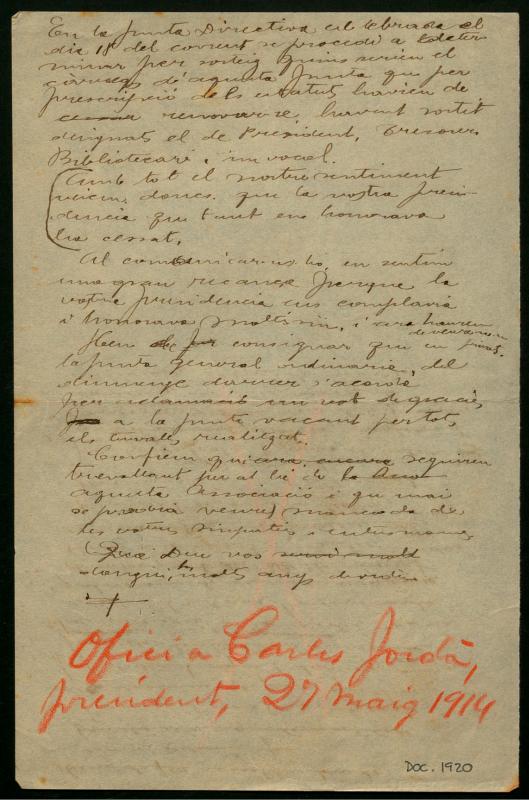 En la Junta Directiva celebrada el
dia 18 del corrent se procedí a deter
minar per sorteig quins serien el
càrrechs d'aquesta Junta que per
prescripció dels estatuts havien de
renovarse, havent sortit
designats el de President, Tresorer
Bibliotecari i un vocal.
Amb tot el nostre sentiment
veiem, doncs, que la vostra presi-
dencia que tant ens honorava
ha cessat.
Al comunicarvosho, en sentim
una gran recança perque la
vostra presidencia ens complavia
i honorava moltissim, i ara haurem
de veurens en privats.
Hem de consignar que en
la Junta general ordinaria, del
diumenge darrer s'acordá
per aclamació un vot de gracies
a la Junta vacant per tots
els travalls realitzats.
Confiem que seguireu
travallant per al bé de la
aquesta Associació i que mai
se podrá veure mancada de
les vostres simpaties i entusiasmes
Deu vos
molts anys de vida.
Ofici a Carles Jordà,
president, 27 maig 1914
DOC. 1920